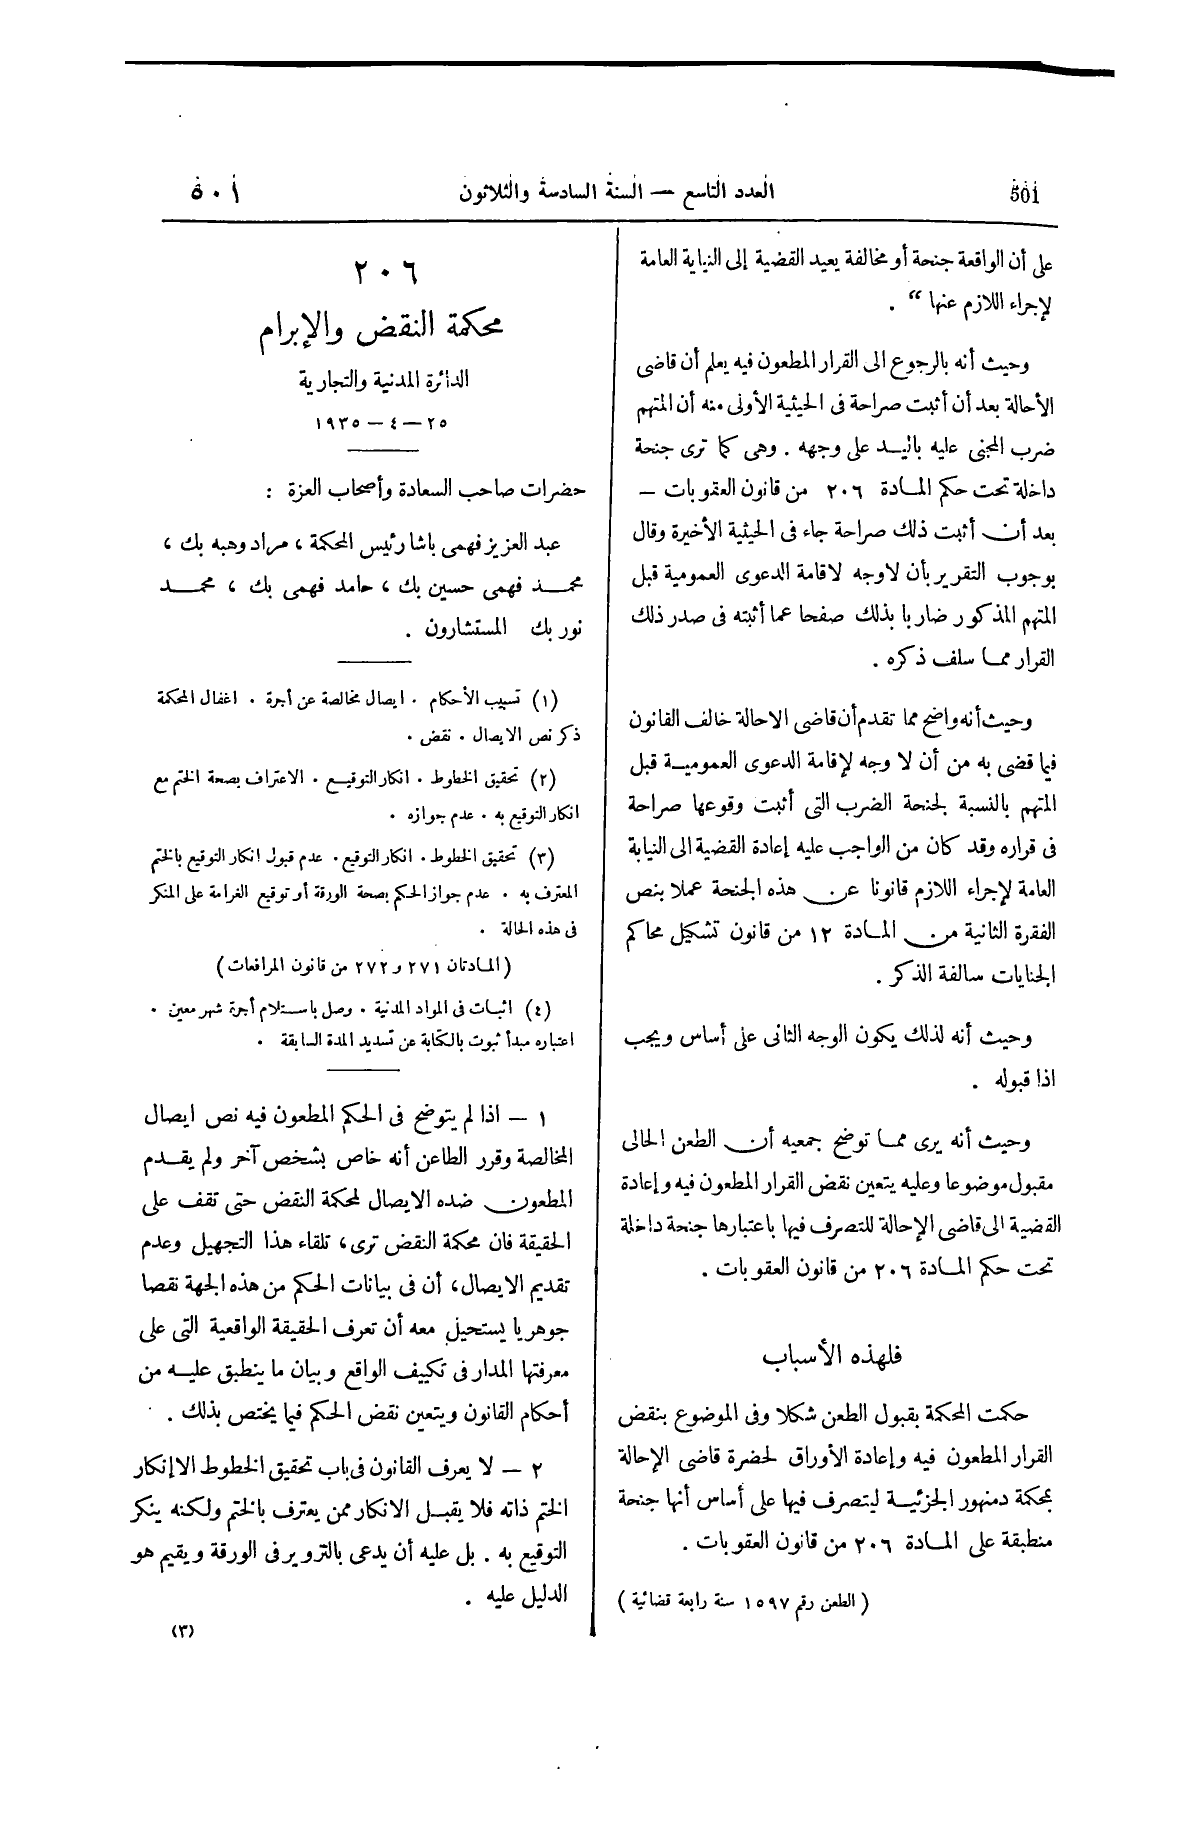 501
العدد التاسع — السنة السادسة والثلاثون
٥٠١
على أن الواقعة جنحة أو مخالفة يعيد القضية إلى النيابة العامة
لإجراء اللازم عنها “ .
وحيث أنه بالرجوع الى القرار المطعون فيه يعلم أن قاضى
الأحالة بعد أن أثبت صراحة فى الحيثية الأولى منه أن المتهم
ضرب المجنى عليه باليد على وجهه . وهى كما ترى جنحة
داخلة تحت حكم المادة ٢٠٦ من قانون العقوبات —
بعد أن أثبت ذلك صراحة جاء فى الحيثية الأخيرة وقال
بوجوب التقرير بأن لاوجه لاقامة الدعوى العمومية قبل
المتهم المذكور ضاربا بذلك صفحا عما أثبته فى صدر ذلك
القرار مما سلف ذكره .
وحيث أنه واضح مما تقدم أن قاضى الاحالة خالف القانون
فيما قضى به من أن لا وجه لإقامة الدعوى العمومية قبل
المتهم بالنسبة لجنحة الضرب التى أثبت وقوعها صراحة
فى قراره وقد كان من الواجب عليه إعادة القضية الى النيابة
العامة لإجراء اللازم قانونا عن هذه الجنحة عملا بنص
الفقرة الثانية من المادة ١٢ من قانون تشكيل محاكم
الجنايات سالفة الذكر .
وحيث أنه لذلك يكون الوجه الثانى على أساس ويجب
اذا قبوله .
وحيث أنه يرى مما توضح جمعيه أن الطعن الحالى
مقبول موضوعا وعليه يتعين نقض القرار المطعون فيه وإعادة
القضية الى قاضى الإحالة للتصرف فيها باعتبارها جنحة داخلة
تحت حكم المادة ٢٠٦ من قانون العقوبات .
فلهذه الأسباب
حكمت المحكمة بقبول الطعن شكلا وفى الموضوع بنقض
القرار المطعون فيه وإعادة الأوراق لحضرة قاضى الإحالة
بمحكمة دمنهور الجزئية ليتصرف فيها على أساس أنها جنحة
منطبقة على المادة ٢٠٦ من قانون العقوبات .
( الطعن رقم ١٥٩٧ سنة رابعة قضائية )
٢٠٦
محكمة النقض والإبرام
الدائرة المدنية والتجارية
٢٥ — ٤ — ١٩٣٥
حضرات صاحب السعادة وأصحاب العزة :
عبد العزيز فهمى باشا رئيس المحكمة ، مراد وهبه بك ،
محمد فهمى حسين بك ، حامد فهمى بك ، محمد
نور بك المستشارون .
(١) تسبيب الأحكام . ايصال مخالصة عن أجرة . اغفال المحكمة
ذكر نص الايصال . نقض .
(٢) تحقيق الخطوط . انكار التوقيع . الاعتراف بصحة الختم مع
انكار التوقيع به . عدم جوازه .
(٣) تحقيق الخطوط . انكار التوقيع . عدم قبول انكار التوقيع بالختم
المعترف به . عدم جواز الحكم بصحة الورقة أو توقيع الغرامة على المنكر
فى هذه الحالة .
(المادتان ٢٧١ و ٢٧٢ من قانون المرافعات)
(٤) اثبات فى المواد المدنية . وصل باستلام أجرة شهر معين .
اعتباره مبدأ ثبوت بالكتابة عن تسديد المدة السابقة .
١ — اذا لم يتوضح فى الحكم المطعون فيه نص ايصال
المخالصة وقرر الطاعن أنه خاص بشخص آخر ولم يقدم
المطعون ضده الايصال لمحكمة النقض حتى تقف على
الحقيقة فان محكمة النقض ترى، تلقاء هذا التجهيل وعدم
تقديم الايصال، أن فى بيانات الحكم من هذه الجهة نقصا
جوهريا يستحيل معه أن تعرف الحقيقة الواقعية التى على
معرفتها المدار فى تكييف الواقع وبيان ما ينطبق عليه من
أحكام القانون ويتعين نقض الحكم فيما يختص بذلك .
٢ — لا يعرف القانون فى باب تحقيق الخطوط الاإنكار
الختم ذاته فلا يقبل الانكار ممن يعترف بالختم ولكنه ينكر
التوقيع به . بل عليه أن يدعى بالتزوير فى الورقة ويقيم هو
الدليل عليه .
(٣)